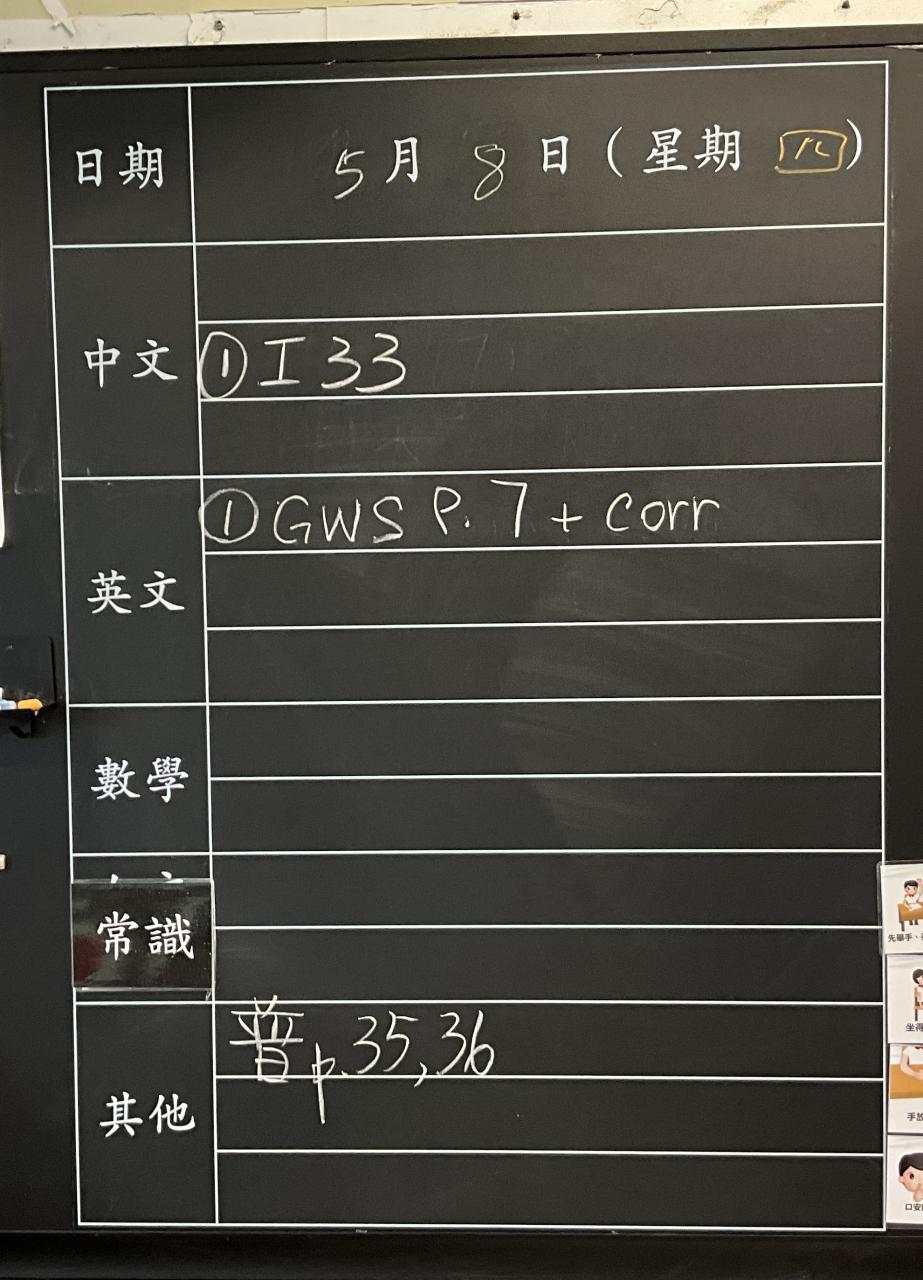 日期 5月 8日(星期 四)
中文
①工33
①GWS P. 7 + Corr
英文
數學
常識
普 p.35,36
其他
先舉手、
坐得
手放
口安